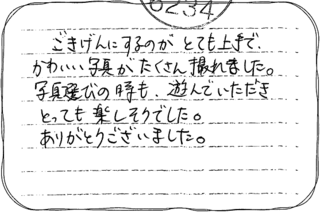 6234
ごきげんにするのが とても上手で、
かわいい写真が、たくさん撮れました。
写真選びの時も、遊んでいただき
とっても 楽しそうでした。
ありがとうございました。